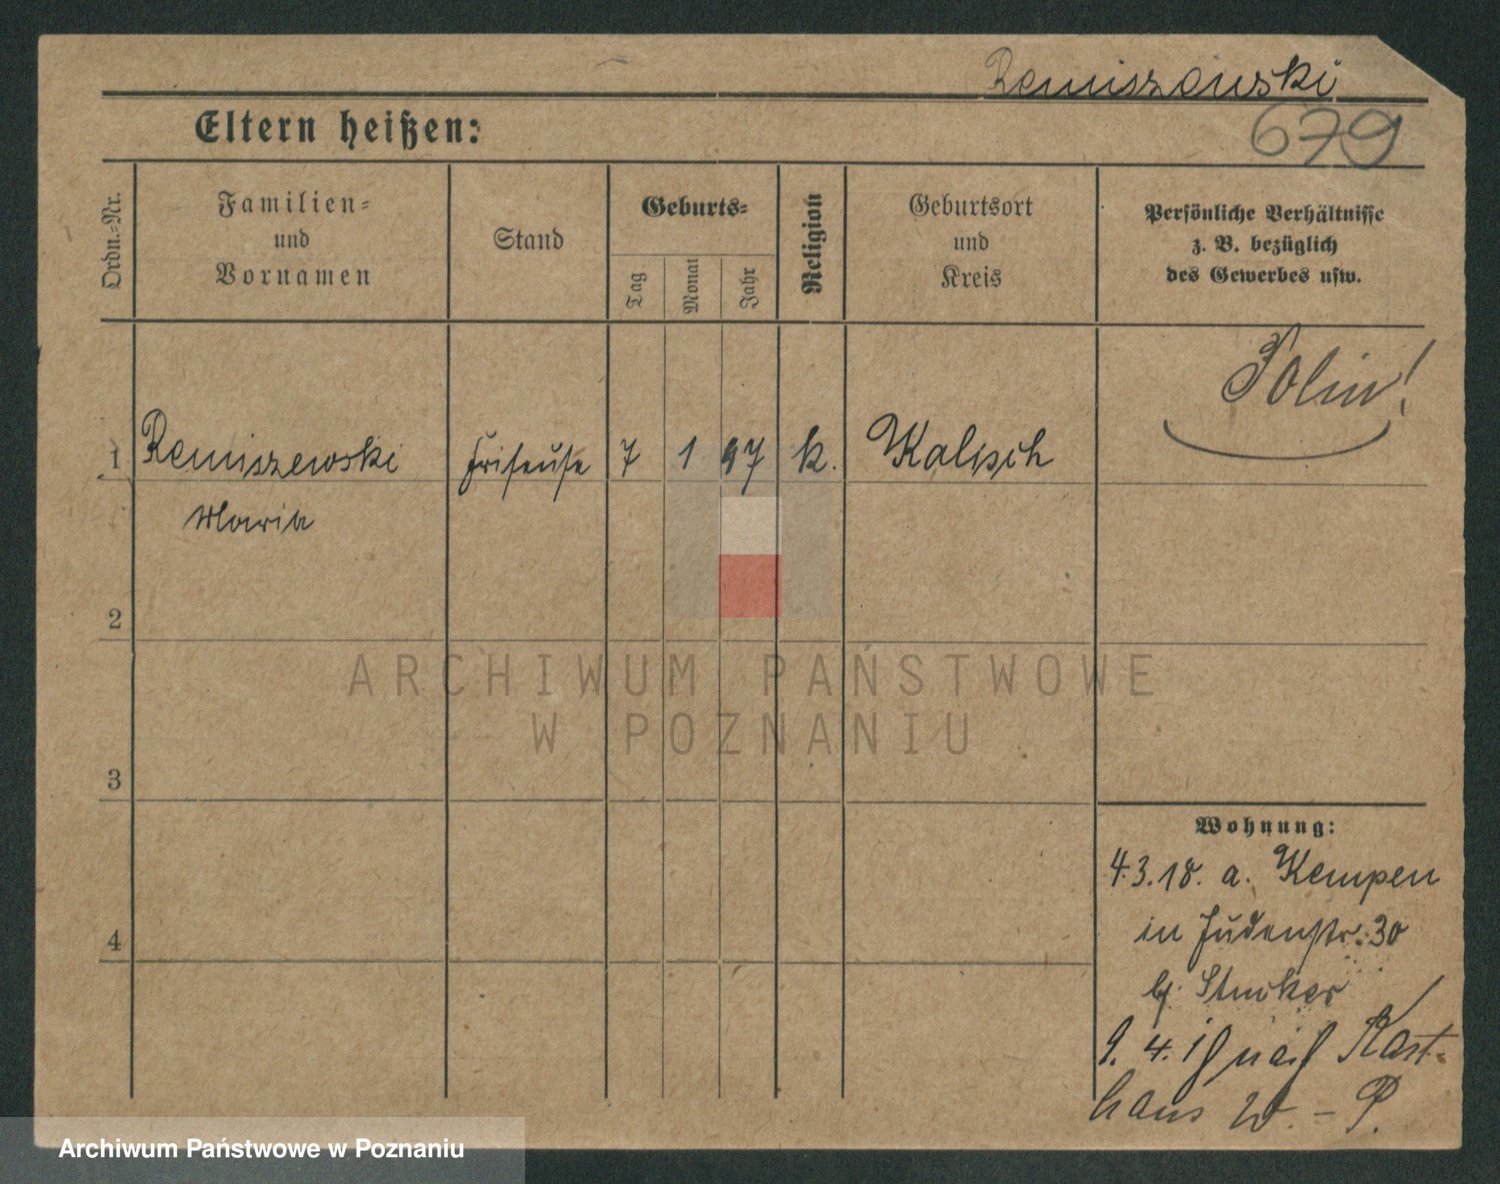 Remiszewski
679
Eltern heißen:
Ordn.-Nr.
Familien-
und
Vornamen
Stand
Geburts-
Tag
Monat
Jahr
Religion
Geburtsort
und
Kreis
Persönliche Verhältnisse
z. B. bezüglich
des Gewerbes usw.
Polin!
1 Remiszewski Friseuse 7 1 97 k. Kalisch
Maria
2
ARCHIWUM PAŃSTWOWE
W POZNANIU
3
Wohnung:
4.3.18. a. Kempen
in Judenstr. 30
b/
4
9.4.18 nach Kart-
haus W. - P.
Archiwum Państwowe w Poznaniu